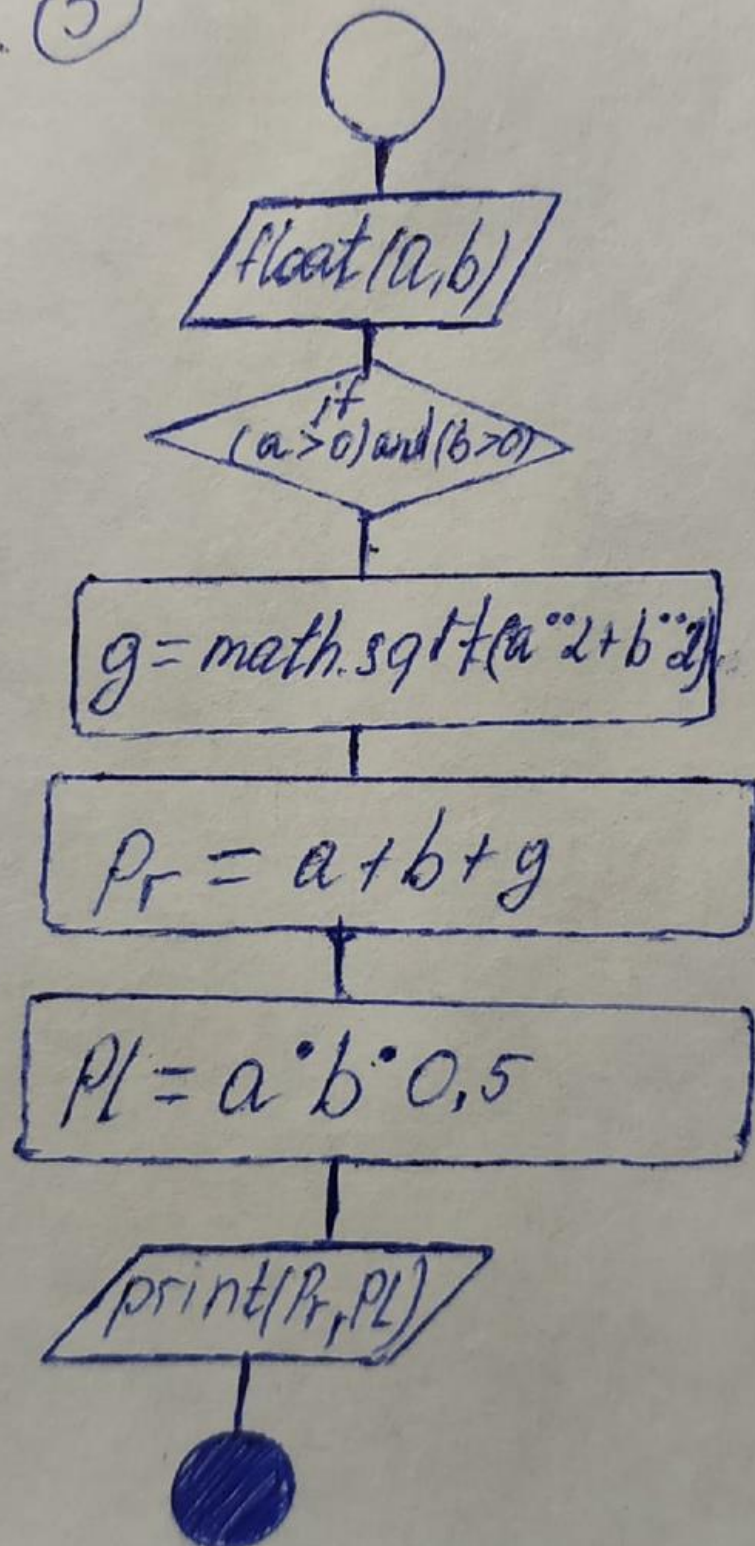 5
float(a,b)
if
(a>0)and(b>0)
g=math.sqrt(a••2+b••2)
Pr = a+b+g
Pl = a•b•0,5
print(Pr,Pl)